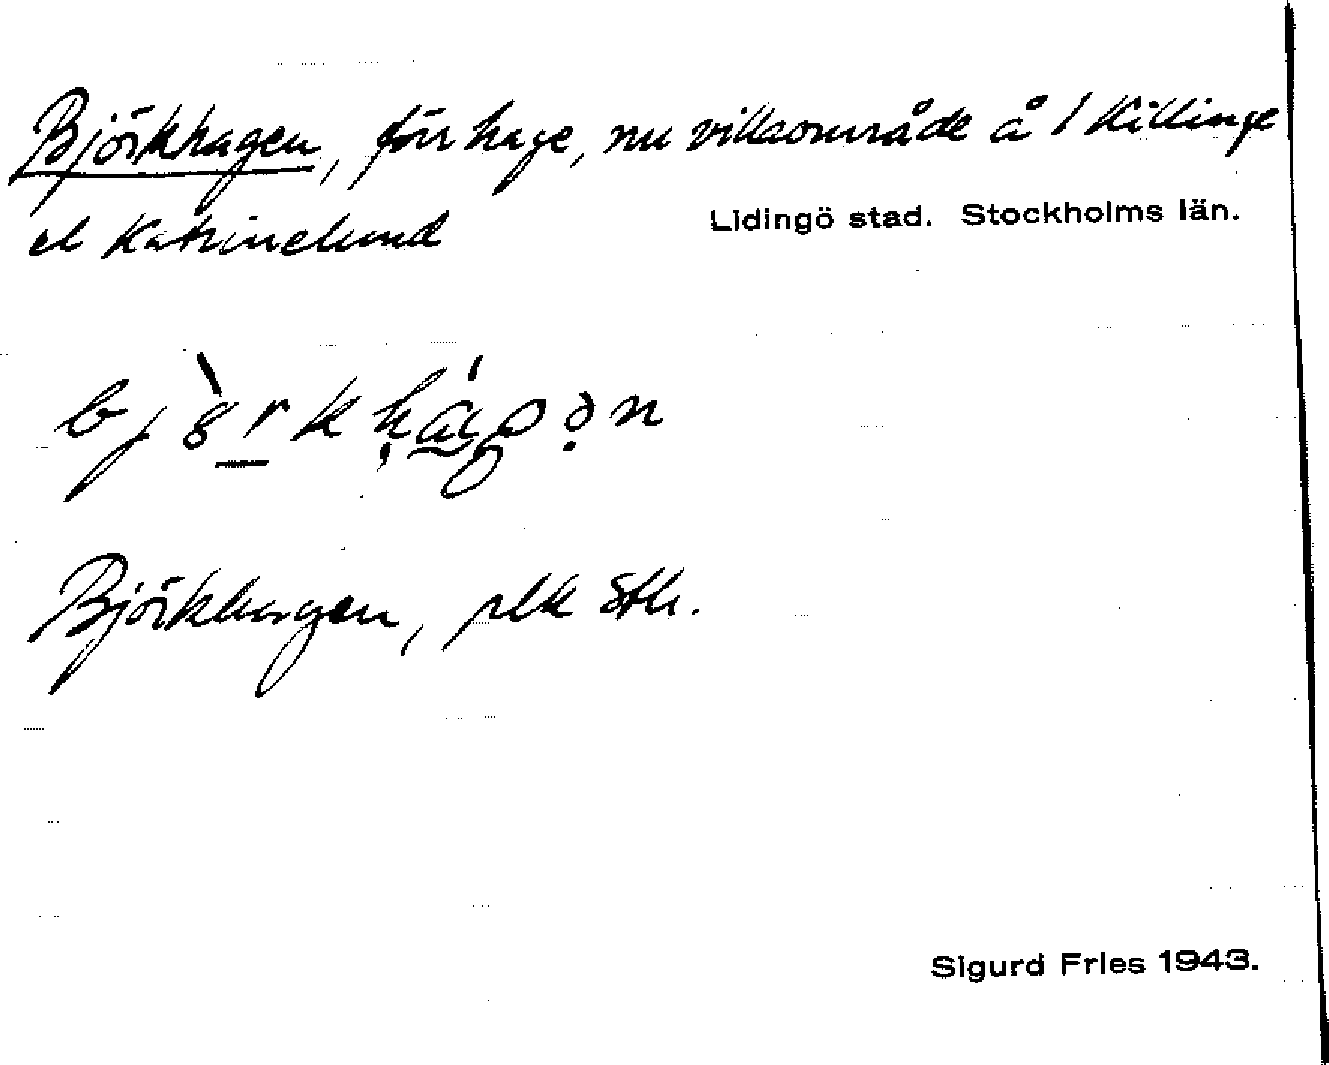 Björkhagen, förr hage, nu villaområde å 1 Killinge
el Katrinelund
Lidingö stad. Stockholms län.
Björkhagen, plk Sthr.
Sigurd Fries 1943.